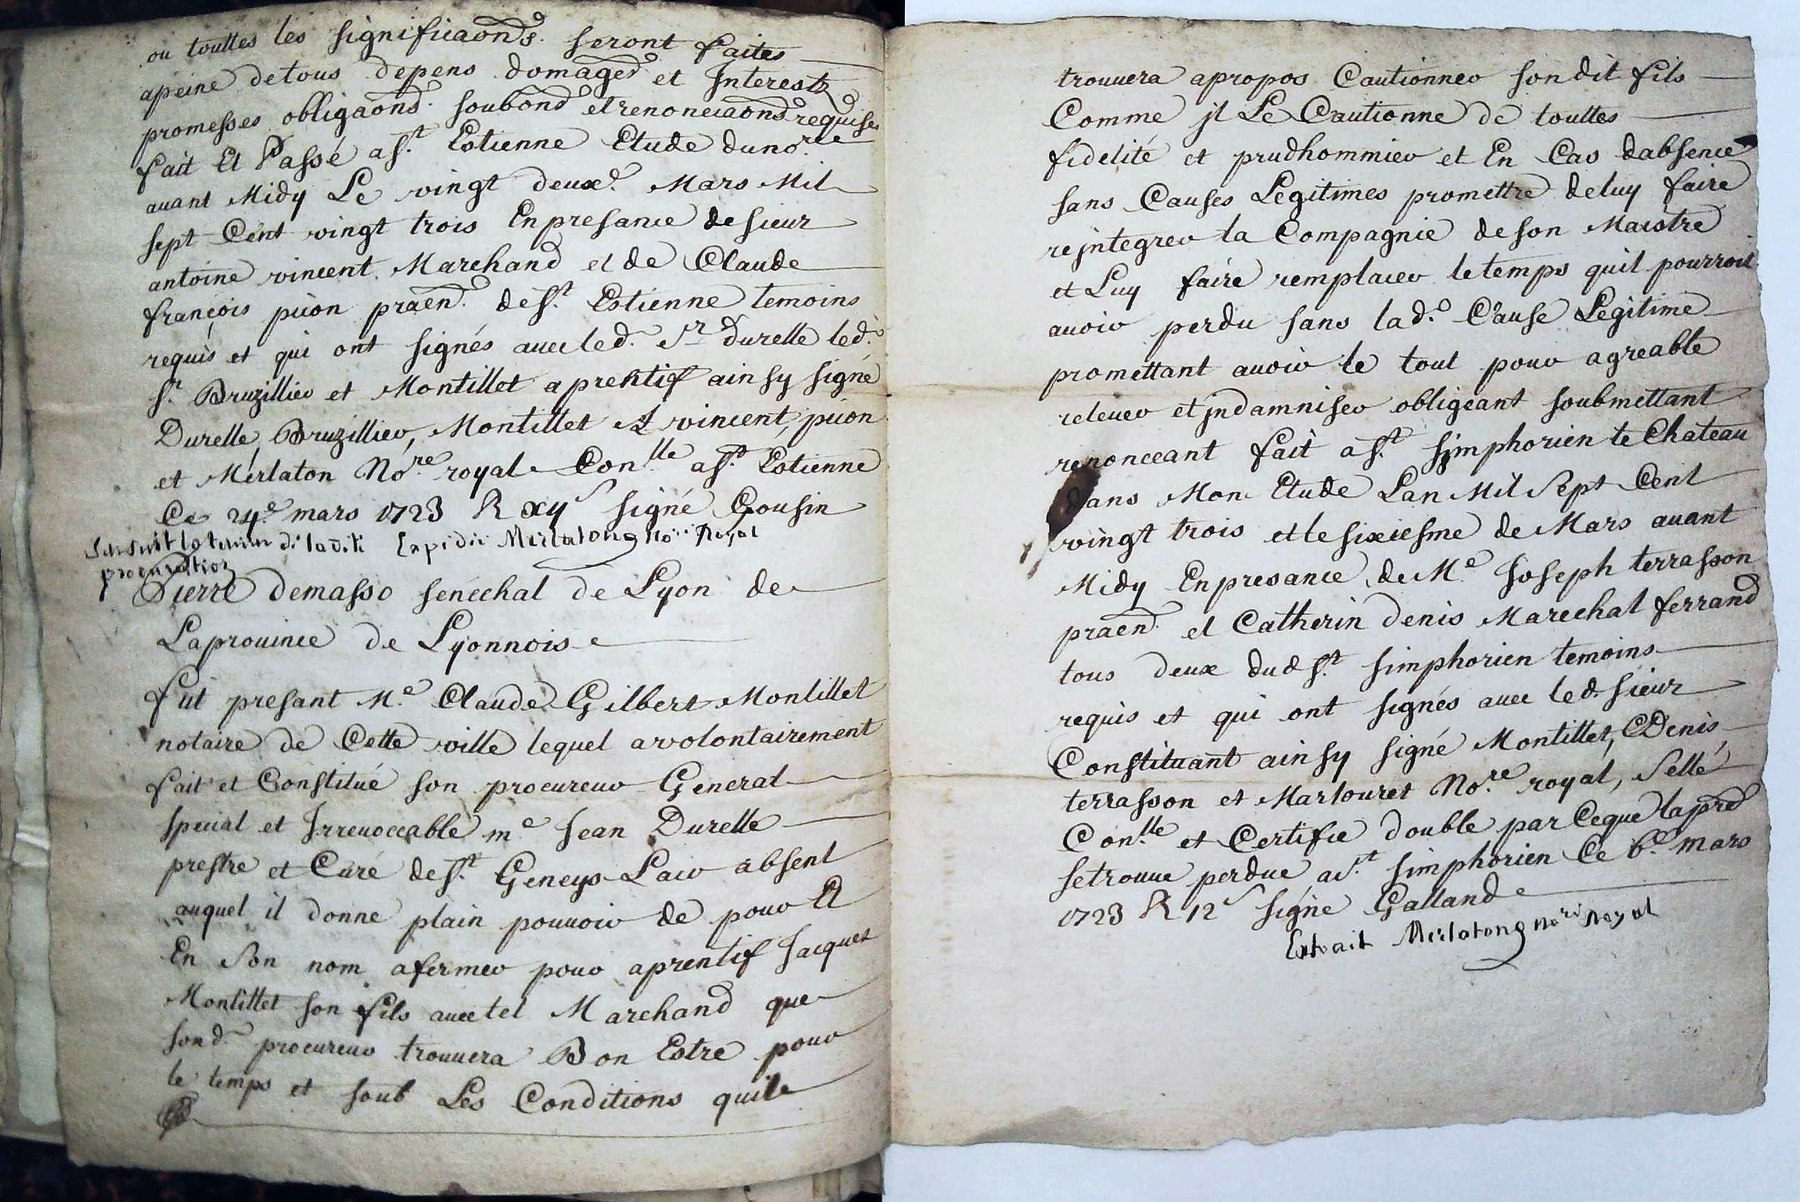 ou touttes les significaons seront faites
apeine detous depens domages et Interestz
promesses obligaons soubons et renonciaons requises
fait Et Passé a st. Estienne Etude dunore
auant Midy Le vingt deuxe. Mars Mil
sept Cent vingt trois En presance de sieur
antoine vincent Marchand et de Claude
françois piion praen. de st. Estienne temoins
requis et qui ont signés auec led. Sr Durelle led.
sr. Bruzillieu et Montillet aprentif ainsy signé
Durelle, Bruzillieu, Montillet A vincent, piion
et Merlaton Nore. royal Conlle a st. Estienne
Ce 24e. mars 1723 R xys signé Cousin
Sensuit la teneur de ladite Expedié Merlatong nore Royal
procuration
Pierre demasso senechal de Lyon de
Laprouince de Lyonnois
fut presant Me. Claude Gilbert Montillet
notaire de Cette ville lequel a volontairement
fait et Constitué son procureur General
special et Irreuoccable me. Jean Durelle
prestre et Curé de st. Geneys Lair absent
auquel il donne plain pouuoir de pour Et
En Son nom afermer pour aprentif Jacques
Montillet son fils auec tel Marchand que
sond. procureur trouuera Bon Estre pour
le temps et soub Les Conditions quile
trouuera apropos Cautionner son dit fils
Comme jl Le Cautionne de touttes
fidelité et prudhommier et En Cas dabsence
sans Causes Legitimes promettre de luy faire
rejntegrer la Compagnie de son Maistre
et Luy faire remplacer le temps quil pourroit
auoir perdu sans lad. Cause Legitime
promettant auoir le tout pour agreable
releuer et jndamniser obligeant soubmettant
renonceant fait a st. Simphorien le Chateau
dans Mon Etude Lan Mil Sept Cent
vingt trois et le sixiesme de Mars auant
Midy En presance de Me. Joseph terrasson
praen. et Catherin Denis Marechal ferrand
tous deux dud st. simphorien temoins
requis et qui ont signés auec led. sieur
Constituant ainsy signé Montillet, CDenis
terrasson et Marlouret Nore. royal, Sellé
Conlle et Certifie double par Ceque lapre
se trouue perdue a st. simphorien Ce 6e. mars
1723 R 12s signé Galland
Extrait Merlatong nore Royal